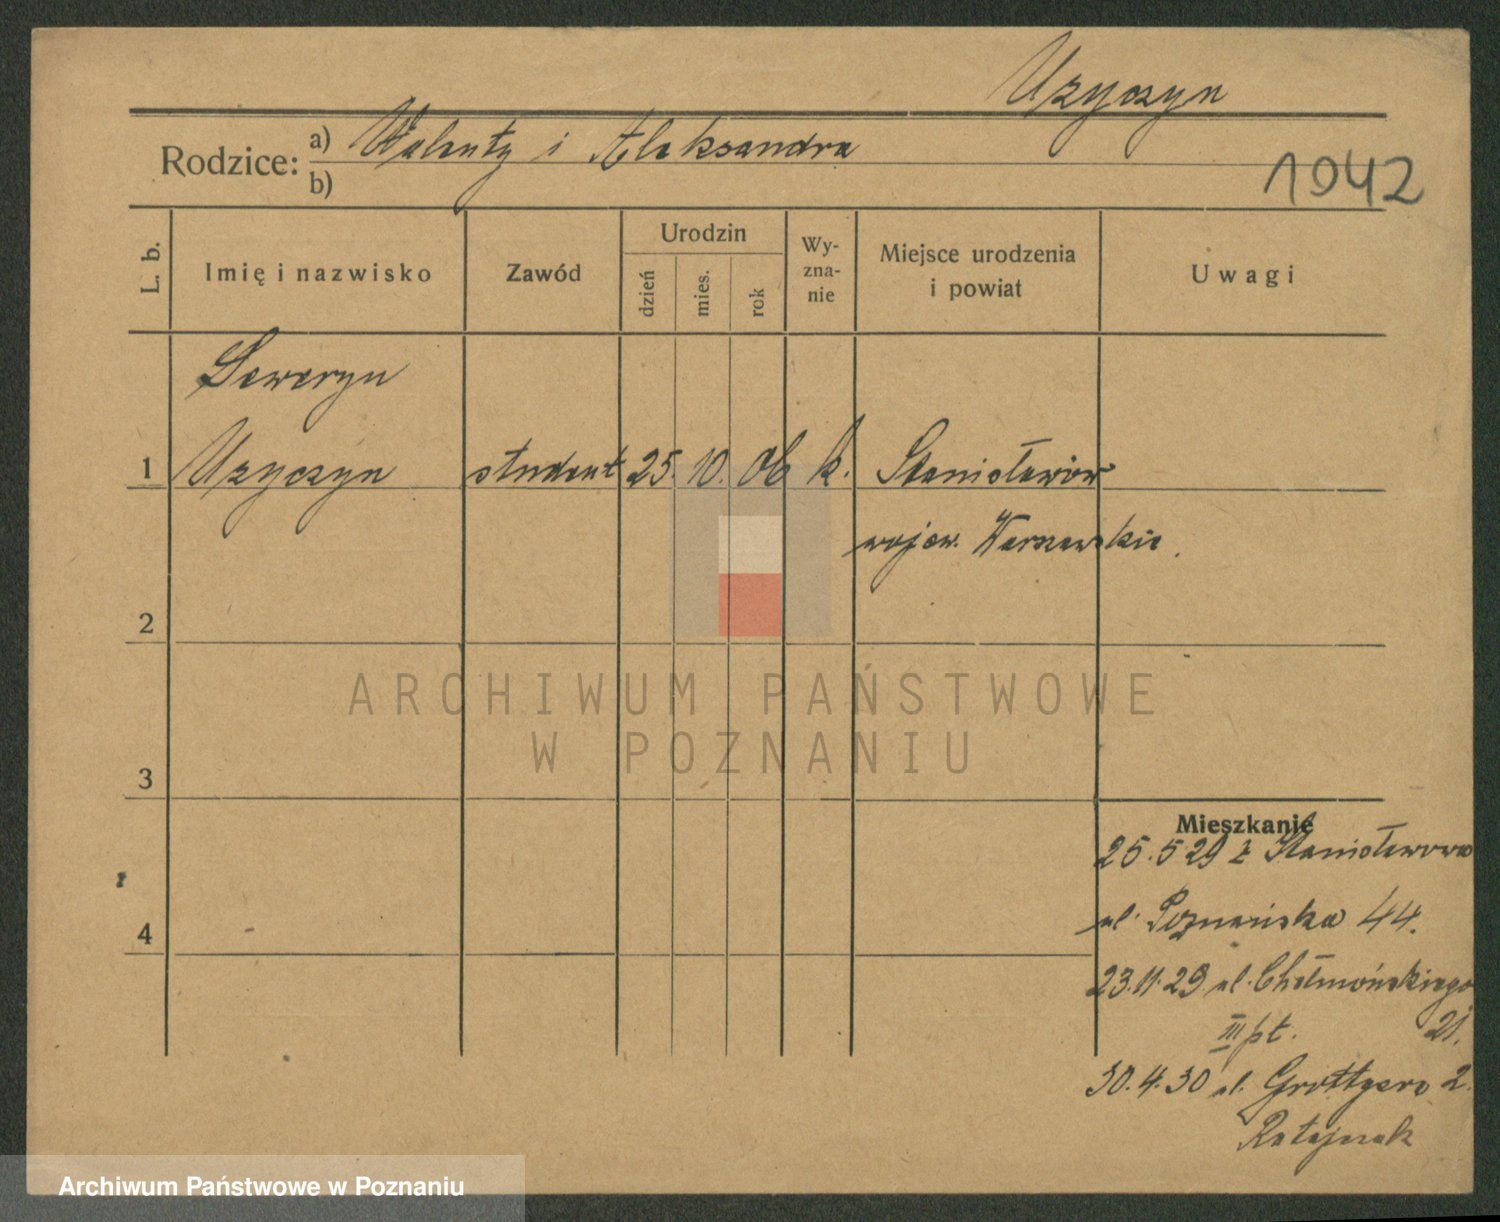 Uzyczyn
Rodzice: a) Walenty i Aleksandra
b)
1042
L. b.
Imię i nazwisko
Zawód
Urodzin
dzień
mies.
rok
Wy-
zna-
nie
Miejsce urodzenia
i powiat
Uwagi
Seweryn
1 Uzyczyn student 25. 10. 06 k. Stanisławów
wojew. Warszawskie.
2
ARCHIWUM PAŃSTWOWE
W POZNANIU
3
Mieszkanie
25.5 29 z Stanisławowa
ul. Poznańska 44.
4
23.11.29 ul. Chełmońskiego
III pt. 21.
30.4.30 ul. Grottgera 2.
Ratajczak
Archiwum Państwowe w Poznaniu